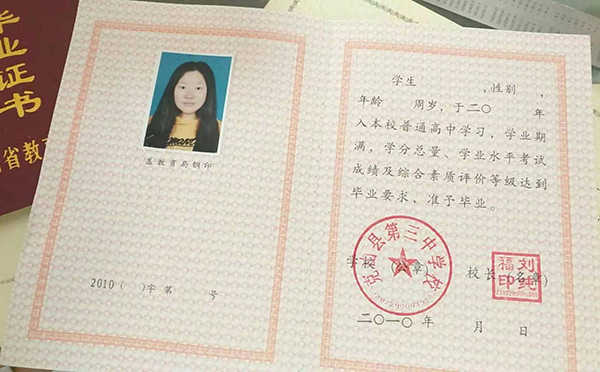 毕业证书
省教育
盖教育局钢印
2010 ( )字第 号
学生 ,性别 ,
年龄 周岁,于二〇 年
入本校普通高中学习,学业期
满,学分总量、学业水平考试
成绩及综合素质评价等级达到
毕业要求、准予毕业。
县第三中学校
学校 (公章)
校长 (名章)
刘纯福印
二〇一〇 年 月 日